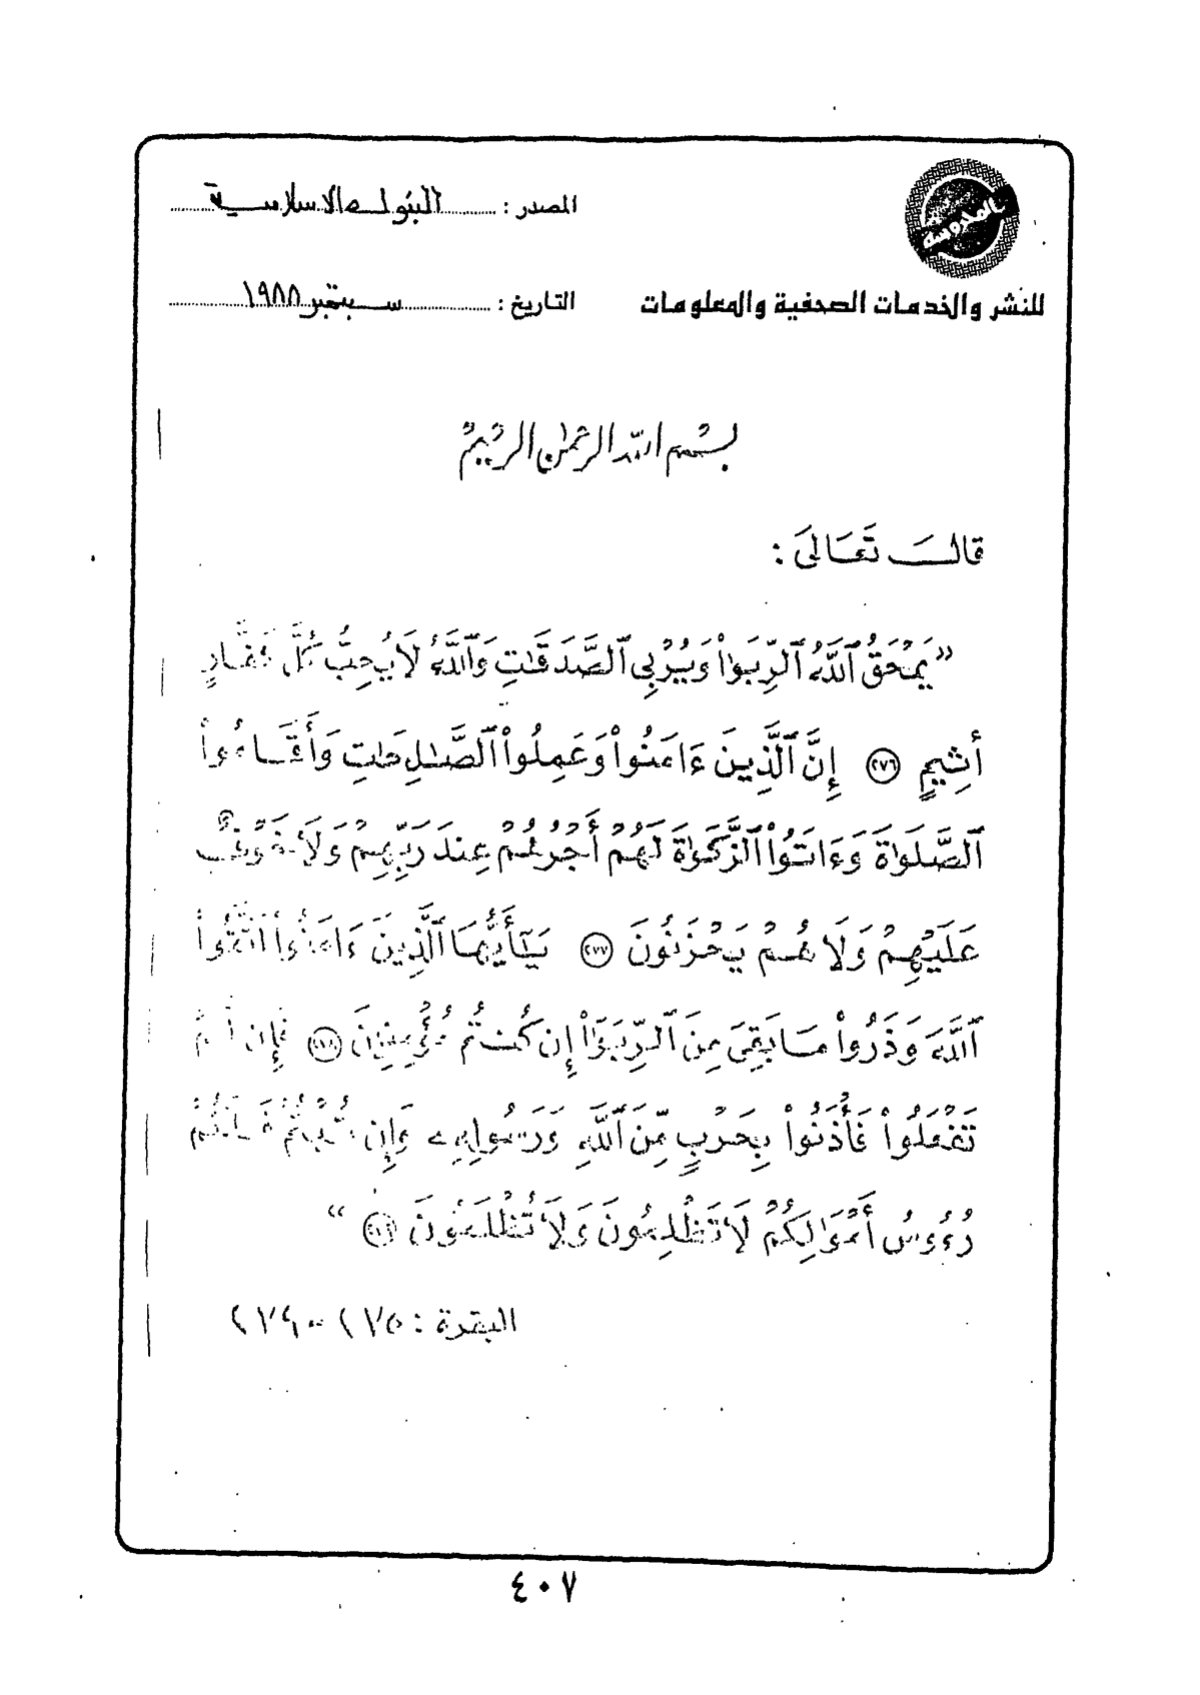 المصدر : البنوك الاسلامية
للنشر والخدمات الصحفية والمعلومات
التاريخ : سبتمبر ١٩٨٨
بسم الله الرحمن الرحيم
قالَ تَعَالىَ :
”يَمْحَقُ ٱللَّهُ ٱلرِّبَوٰا۟ وَيُرْبِى ٱلصَّدَقَٰتِ وَٱللَّهُ لَا يُحِبُّ كُلَّ كَفَّارٍ
أَثِيمٍ ٢٧٦ إِنَّ ٱلَّذِينَ ءَامَنُوا۟ وَعَمِلُوا۟ ٱلصَّٰلِحَٰتِ وَأَقَامُوا۟
ٱلصَّلَوٰةَ وَءَاتَوُا۟ ٱلزَّكَوٰةَ لَهُمْ أَجْرُهُمْ عِندَ رَبِّهِمْ وَلَا خَوْفٌ
عَلَيْهِمْ وَلَا هُمْ يَحْزَنُونَ ٢٧٧ يَٰٓأَيُّهَا ٱلَّذِينَ ءَامَنُوا۟ ٱتَّقُوا۟
ٱللَّهَ وَذَرُوا۟ مَا بَقِىَ مِنَ ٱلرِّبَوٰٓا۟ إِن كُنتُم مُّؤْمِنِينَ ٢٧٨ فَإِن لَّمْ
تَفْعَلُوا۟ فَأْذَنُوا۟ بِحَرْبٍ مِّنَ ٱللَّهِ وَرَسُولِهِۦ وَإِن تُبْتُمْ فَلَكُمْ
رُءُوسُ أَمْوَٰلِكُمْ لَا تَظْلِمُونَ وَلَا تُظْلَمُونَ ٢٧٩ “
البقرة : ٢٧٥ - ٢٧٩
٤٠٧